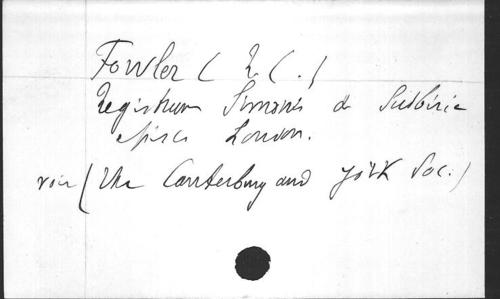 Fowler (R.C.)
Registrum Simonis de Sudbiria
episc London.
voir (The Canterbury and York Soc.)